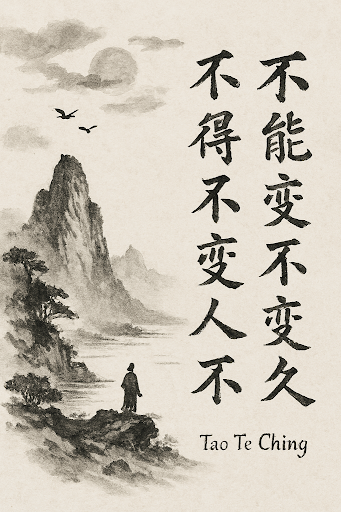 不能变不变久
不得不变人不
Tao Te Ching